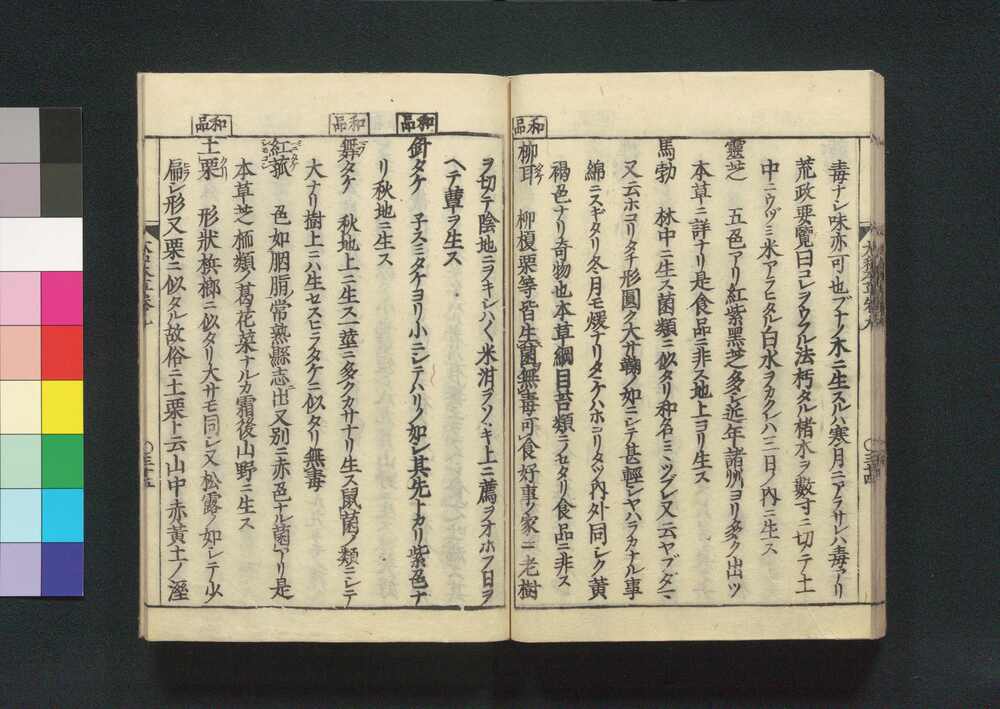 毒ナシ味亦可也ブナノ木ニ生スルハ寒月ニアラサレハ毒アリ
荒政要覽曰コレヲウフル法朽タル楮木ヲ數寸ニ切テ土
中ニウヅミ米アラヒタル白水ヲカクレハ三日ノ内ニ生ス
靈芝 五色アリ紅紫黑芝多シ近年諸州ヨリ多ク出ツ
本草ニ詳ナリ是食品ニ非ス地上ヨリ生ス
馬勃 林中ニ生ス菌類ニ似タリ和名ミヽツブレ又云ヤブダマ
又云ホコリタチ形圓ク大サ鞠ノ如ニシテ甚輕シヤハラカナル事
綿ニスギタリ冬月モ煖ナリタヽケハホコリタツ内外同シク黄
褐色ナリ奇物也本草綱目苔類ラノセタリ食品ニ非ス
和品
柳耳 柳榎栗等皆生菌無毒可食好事ノ家ニ老樹
ヲ切テ陰地ニヲキシハ〱米泔ヲソヽキ上ニ薦ヲオホフ日ヲ
ヘテ蕈ヲ生ス
和品
針タケ 子スミタケヨリ小ニシテハリノ如シ其先トカリ紫色ナ
リ秋地ニ生ス
和品
舞タケ 秋地上ニ生ス一莖ニ多クカサナリ生ス鼠菌ノ類ニシテ
大ナリ樹上ニハ生セスヒラタケニ似タリ無毒
紅菰 色如胭脂常熟縣志出又別ニ赤色ナル菌アリ是
本草芝栭類ノ葛花菜ナルカ霜後山野ニ生ス
和品
土栗 形狀檳榔ニ似タリ大サモ同シ又松露ノ如シテ少
扁シ形又栗ニ似タル故俗ニ土栗ト云山中赤黄土ノ溼